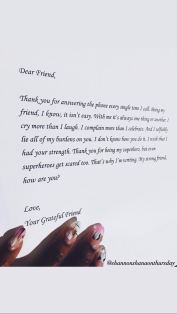 Dear Friend,
Thank you for answering the phone every single time I call. Being my
friend, I know, it isn't easy. With me it's always one thing or another. I
cry more than I laugh. I complain more than I celebrate. And I selfishly
lie all of my burdens on you. I don't know how you do it. I wish that I
had your strength. Thank you for being my superhero, but even
superheroes get scared too. That's why I'm writing. My strong friend,
how are you?
Love,
Your Grateful Friend
@shannonshanaonthursday_